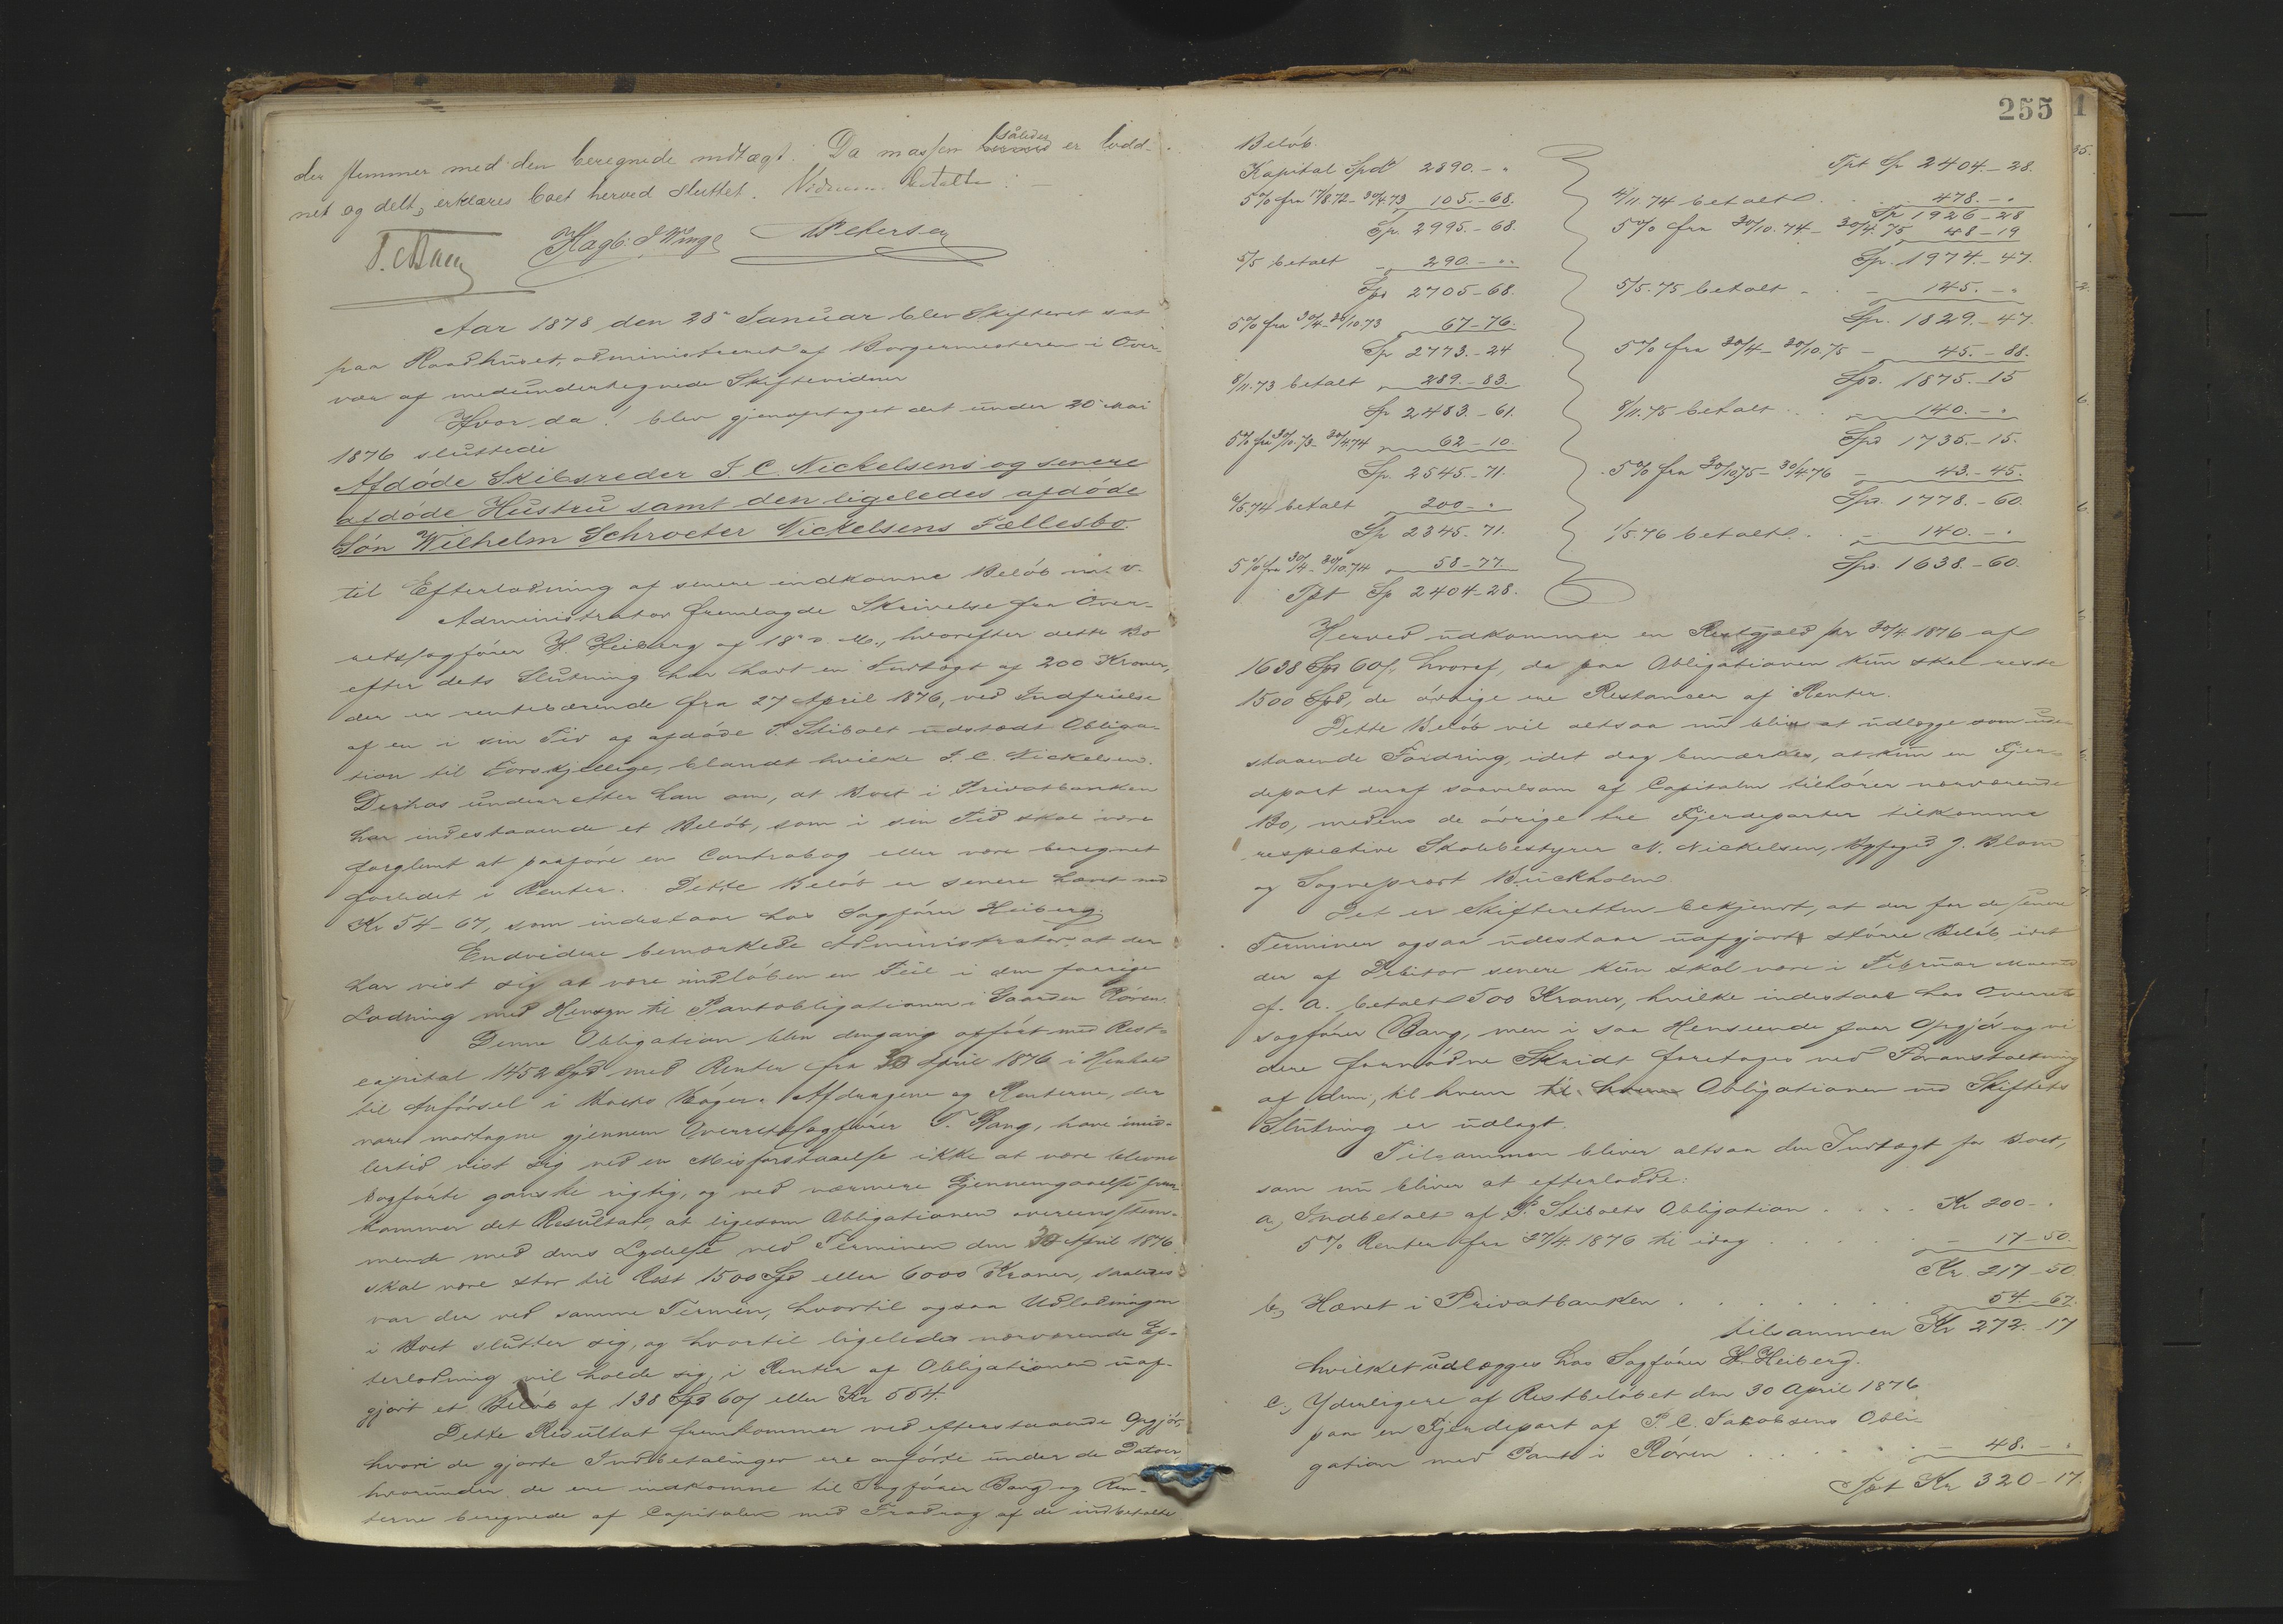 der stemmer med den beregnede indtægt. Da massen således er lodd-
net og delt, erklæres boet herved sluttet. Vidnerne betalte:
Hagb. J Winge Petersen
Aar 1878 den 28' Januar blev Skifteret sat
paa Raadhuset, administreret af Borgermesteren i Over-
vær af medundertegnede Skiftevidner
Hvor da! blev gjenoptaget det under 20' Mai
1876 sluttede
Afdöde Skibsreder J. C. Nickelsens og senere
afdöde Hustru samt den ligeledes afdöde
Sön Wilhelm Schroeter Nickelsens Fællesbo
til Efterlodning af senere indkomne Belöb m. v.
Administrator fremlagde Skrivelse fra Over-
retssagförer H. Heiberg af 18' d. M., hvorefter dette Bo
efter dets Slutning har havt en Indtægt af 200 Kroner,
der er rentebærende fra 27 April 1876, ved Indfrielse
af en i sin Tid af afdöde P. Stibolt udstædt Obliga-
tion til Forskjellige, blandt hvilke J. C. Nickelsen.
Derhos underretter han om, at Boet i Privatbanken
har indestaaende et Belöb, som i sin Tid skal være
forglemt at paaföre en Contrabog eller være beregnet
forlidet i Renter. Dette Belöb er senere hævet med
Kr 54-67, som indestaar hos Sagförer Heiberg.
Endvidere bemærkede Administrator, at der
har vist sig at være indlöben en Feil i den forrige
Lodning med Hensyn til Pantobligationen i Gaarden Rören.
Denne Obligation blev dengang opfört med Rest-
capital 1452 Spd med Renter fra 30 April 1876 i Henhold
til Anförsel i Boets Böger. Afdragene og Renterne, der
vare modtagne gjennem Overretssagförer T. Bang, have imid-
lertid vist sig ved en Misforstaaelse ikke at være blevne
bogförte ganske rigtig, og ved nærmere Gjennemgaaelse frem-
kommer det Resultat, at ligesom Obligationen overensstem-
mende med dens Lydelse ved Terminen den 30 April 1876
skal være stor til Rest 1500 Spd eller 6000 Kroner, saaledes
var der ved samme Termin, hvortil ogsaa Udlodningen
i Boet slutter sig, og hvortil ligeledes nærværende Ef-
terlodning vil holde sig, i Renter af Obligationen uaf-
gjort et Belöb af 138 Spd 60 s eller Kr 554.
Dette Resultat fremkommer ved efterstaaende Opgjör,
hvori de gjorte Indbetalinger ere anförte under de Datoer
hvorunder de ere indkomne til Sagförer Bang og Ren-
terne beregnede af Capitalen med Fradrag af de indbetalte
255
Belöb.
Kapital Spd 2890.-"
5% fra 17/8 72 - 30/4.73 105.-68.
Sp. 2995.-68.
5/5 betalt - 290.-""
Spd 2705-68.
5% fra 30/4-30/10.73 67-76.
Sp 2773.-24
8/11.73 betalt 289.-83.
Sp 2483.-61.
5% fra 30/10.73-30/4 74 62-10.
Sp. 2545.-71.
6/5.74 betalt 200-"
Sp 2345.71.
5% fra 30/4-30/10.74 58-77.
Tpt Sp 2404-28.
Tpt Sp 2404.-28.
4/11.74 betalt 478.-"
Sp 1926-28
5% fra 30/10.74-30/4.75 48-19
Sp. 1974.-47.
5/5.75 betalt - 145.-"
Sp. 1829.-47.
5% fra 30/4-30/10.75 - 45.-88.
Spd. 1875.-15
8/11.75 betalt 140.-"
Spd 1735.-15.
5% fra 30/10 75-30/4 76 - 43.-45.
Spd. 1778.-60.
1/5.76 betalt - 140.-"
Spd. 1638.-60.
Herved udkommer en Restgjæld pr 30/4 1876 af
1638 Spd 60 s, hvoraf, da paa Obligationen kun skal reste
1500 Spd, de övrige ere Restancer af Renter.
Dette Belöb vil altsaa nu blive at udlægge som ude-
staaende Fordring, idet dog bemærkes, at kun en Fjer-
depart deraf saavelsom af Capitalen tilhörer nærværende
Bo, medens de övrige tre Fjerdeparter tilkomme
respective Skolebestyrer N. Nickelsen, Byfoged J. Blom
og Sogneprest Buckholm.
Det er Skifteretten bekjendt, at der for de senere
Terminer ogsaa udestaar uafgjort större Belöb, idet
der af Debitor senere kun skal være i Februar Maaned
f. A. betalt 500 Kroner, hvilke indestaar hos Overrets-
sagförer Bang, men i saa Henseende faar Opgjör og vi-
dere fornödne Skridt foretages ved Foranstaltning
af dem, til hvem til hvem Obligationen ved Skiftets
Slutning er udlagt.
Tilsammen bliver altsaa den Indtægt for Boet,
som nu bliver at efterlodde:
a, Indbetalt af P. Stibolts Obligation . . . . Kr 200-"
5% Renter fra 27/4 1876 til idag . . . - 17-50.
Kr. 217-50
b, Hævet i Privatbanken . . . . . 54.-67.
tilsammen Kr 272.-17
hvilket udlægges hos Sagförer H. Heiberg.
c, Yderligere af Restbelöbet den 30 April 1876
paa en Fjerdepart af P. C. Jakobsens Obli-
gation med Pant i Rören . . . - 48.-"
Tpt Kr 320-17.